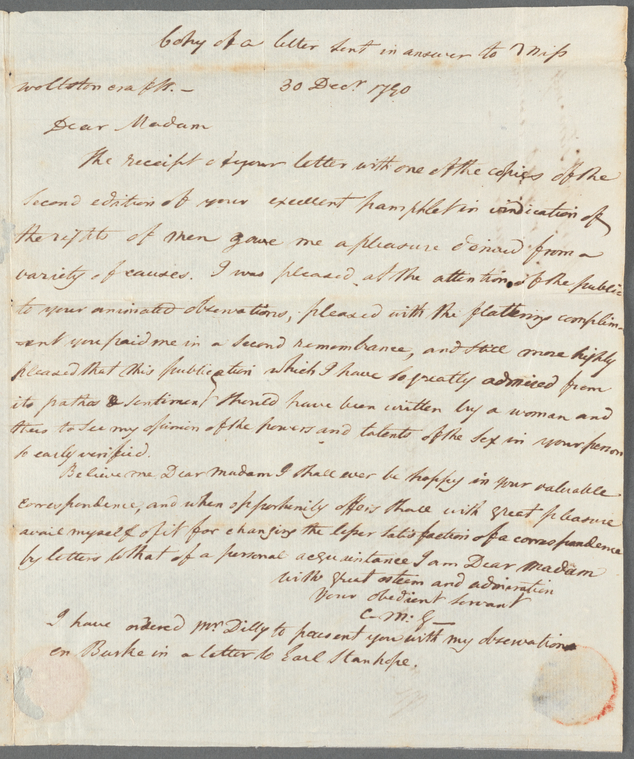 Copy of a letter sent in answer to Miss
Wollstoncraft. – 30 Decr. 1790
Dear Madam
The receipt of your letter with one of the copies of the
second edition of your excellent pamphlet in vindication of
the rights of men gave me a pleasure derived from a
variety of causes. I was pleased at the attention of the public
to your animated observations, pleased with the flattering complim-
-ent you paid me in a second remembrance, and still more highly
pleased that this publication which I have so greatly admired from
its pathos & sentiment should have been written by a woman and
thus to see my opinion of the powers and talents of the sex in your person
so early verified.
Believe me Dear Madam I shall ever be happy in your valuable
correspondence, and when opportunity offers shall with great pleasure
avail myself of it for changing the lesser satisfaction of a correspondence
by letters to that of a personal acquintance I am Dear Madam
with great esteem and admiration
Your obedient servant
C. M. G–
I have ordered Mr. Dilly to present you with my observations
on Burke in a letter to Earl Stanhope.